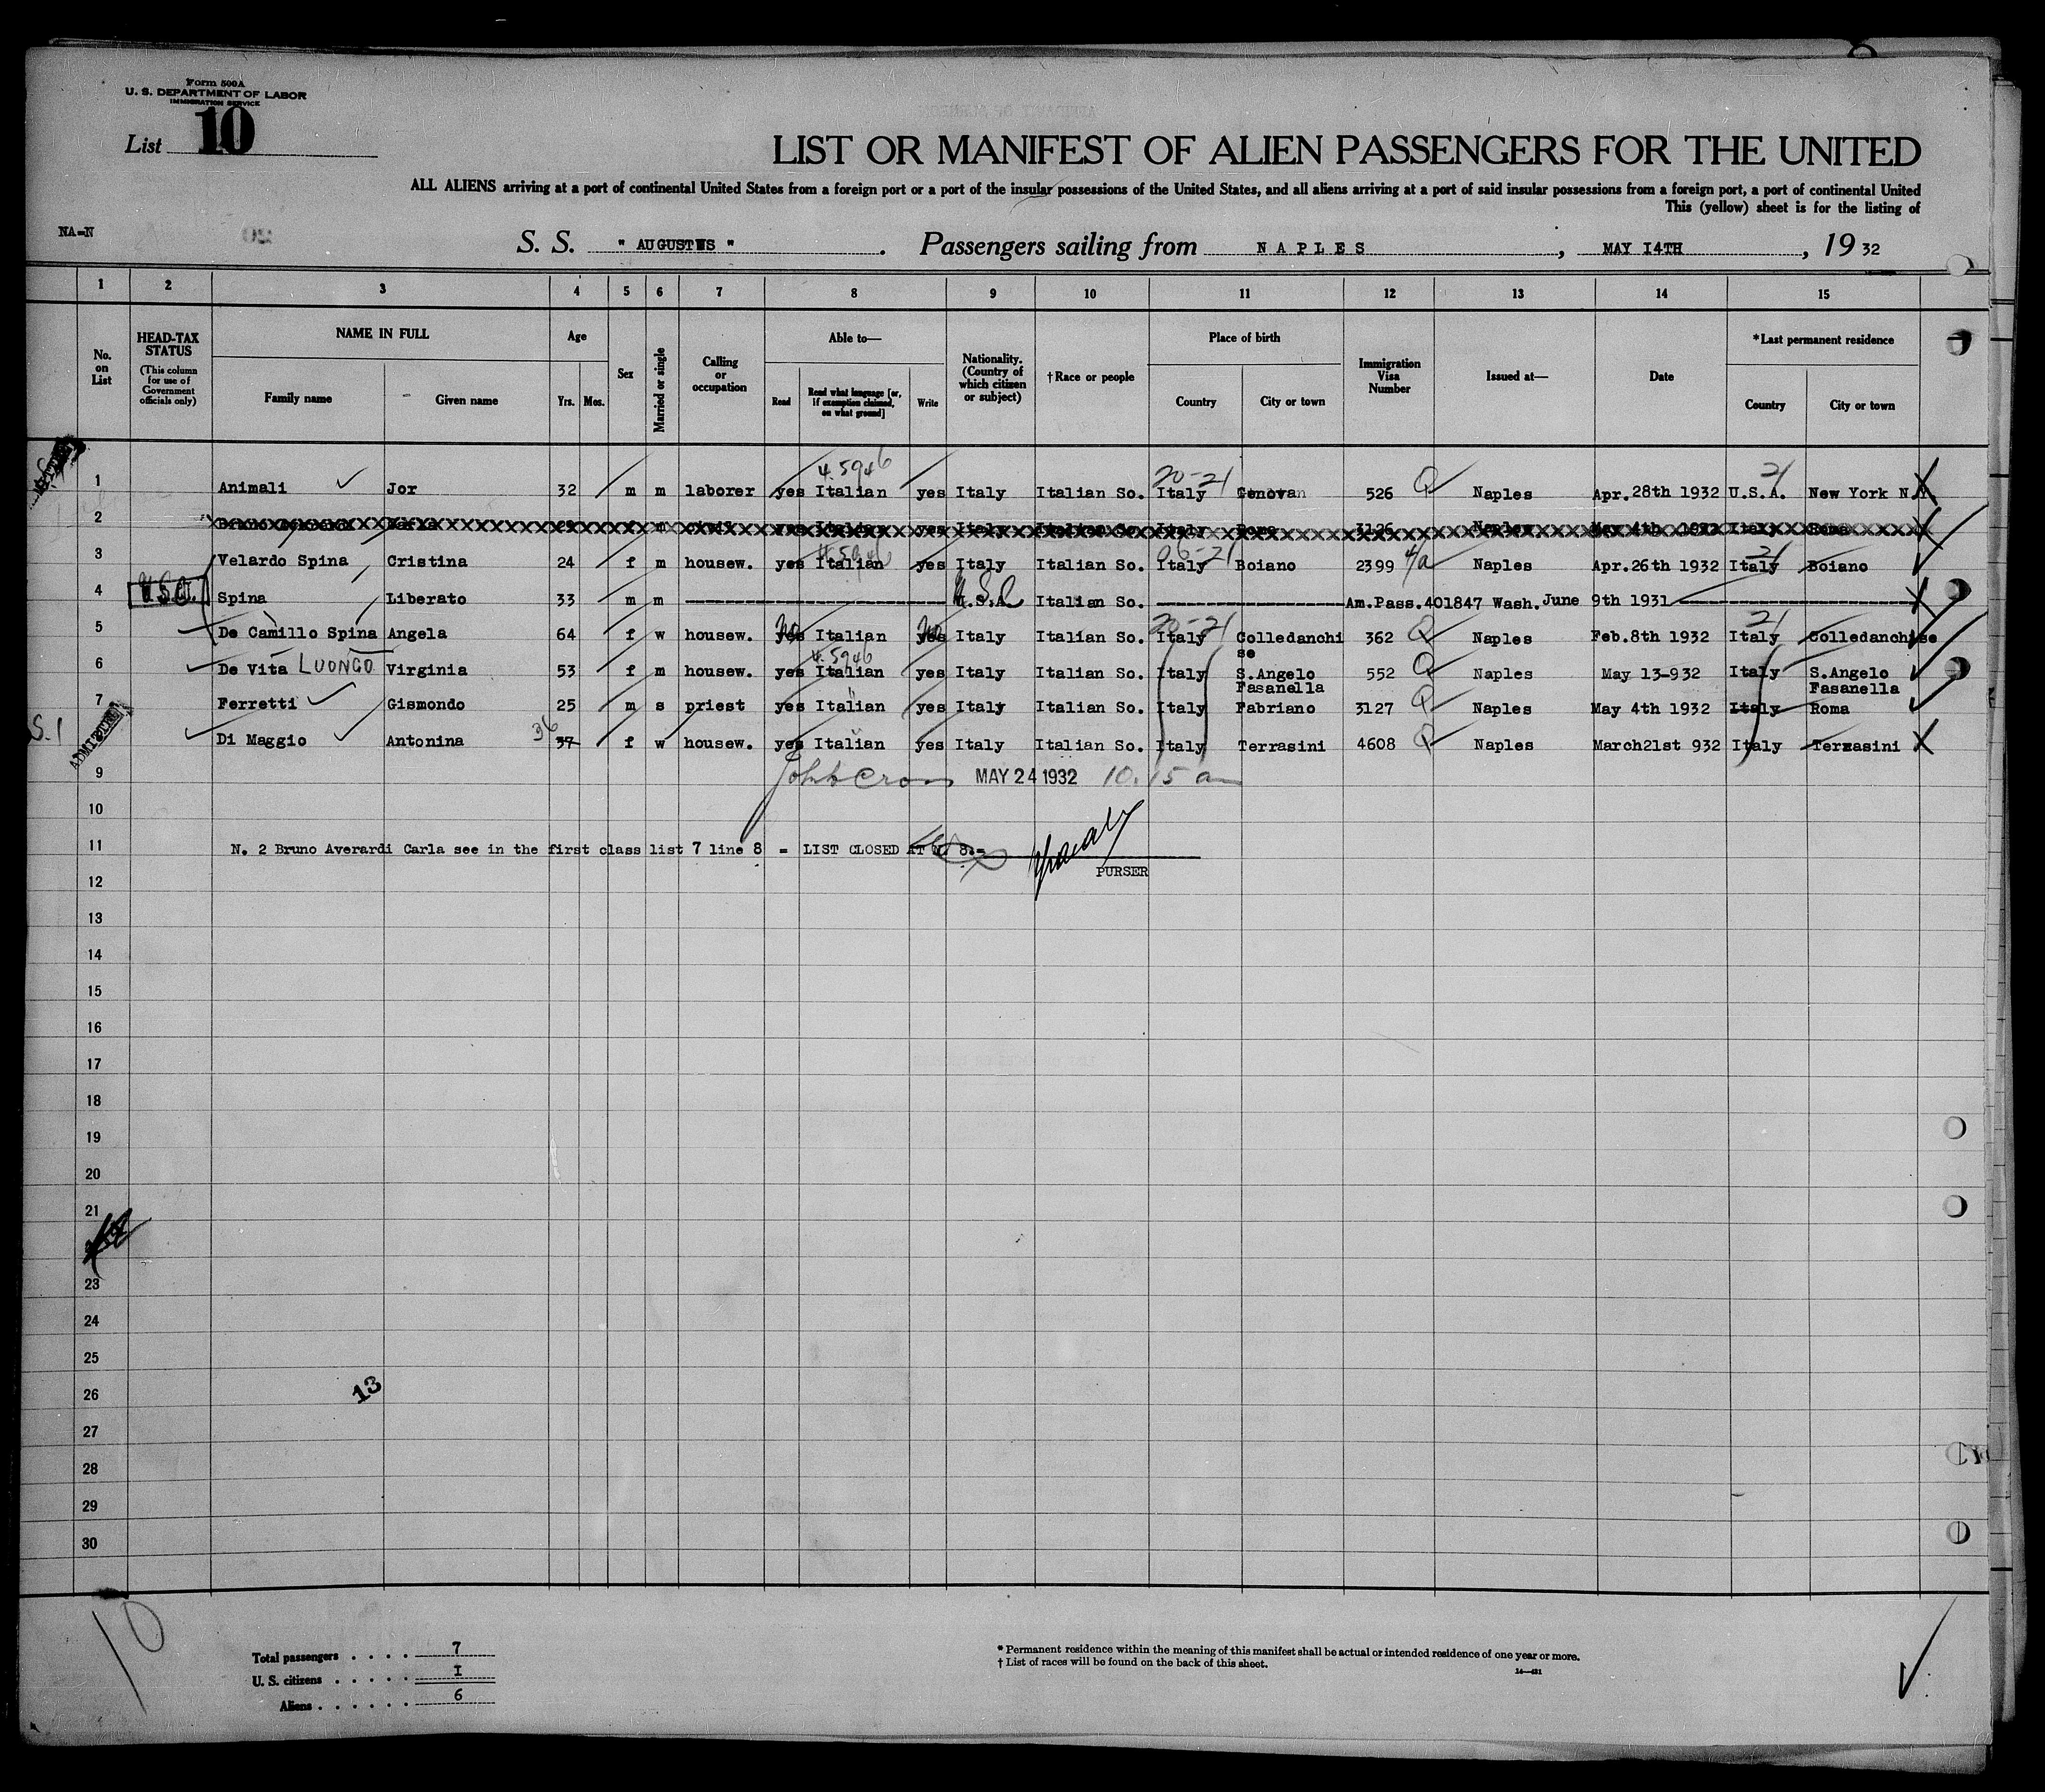 Form 500A
U. S. DEPARTMENT OF LABOR
IMMIGRATION SERVICE
List 10
LIST OR MANIFEST OF ALIEN PASSENGERS FOR THE UNITED
ALL ALIENS arriving at a port of continental United States from a foreign port or a port of the insular possessions of the United States, and all aliens arriving at a port of said insular possessions from a foreign port, a port of continental United
This (yellow) sheet is for the listing of
NA-N
S. S. " AUGUSTUS " . Passengers sailing from NAPLES , MAY 14TH , 19 32
1 2 3 4 5 6 7 8 9 10 11 12 13 14 15
No. on List
HEAD-TAX STATUS
(This column for use of Government officials only)
NAME IN FULL
Family name
Given name
Age
Yrs. Mos.
Sex
Married or single
Calling or occupation
Able to—
Read
Read what language [or, if exemption claimed, on what ground]
Write
Nationality. (Country of which citizen or subject)
†Race or people
Place of birth
Country
City or town
Immigration Visa Number
Issued at—
Date
*Last permanent residence
Country
City or town
4.5946 20-21 21
1 Animali Jor 32 m m laborer yes Italian yes Italy Italian So. Italy Genovan 526 Q Naples Apr.28th 1932 U.S.A. New York N.Y
2 Italian yes Italy Italian So. Italy Roma 3126 Naples May 4th 1932 Italy Roma
4.5946 06-21 21
3 Velardo Spina Cristina 24 f m housew. yes Italian yes Italy Italian So. Italy Boiano 2399 4/a Naples Apr.26th 1932 Italy Boiano
4 U.S.C. Spina Liberato 33 m m U.S.A. U.S.C Italian So. Am.Pass.401847 Wash. June 9th 1931
20-21 21
5 De Camillo Spina Angela 64 f w housew. yes no Italian yes no Italy Italian So. Italy Colledanchise 362 Q Naples Feb.8th 1932 Italy Colledanchise
4.5946
6 De Vita LUONGO Virginia 53 f m housew. yes Italian yes Italy Italian So. Italy S.Angelo Fasanella 552 Q Naples May 13-932 Italy S.Angelo Fasanella
7 Ferretti Gismondo 25 m s priest yes Italian yes Italy Italian So. Italy Fabriano 3127 Q Naples May 4th 1932 Italy Roma
S.I ADMITTED Di Maggio Antonina 37 36 f w housew. yes Italian yes Italy Italian So. Italy Terrasini 4608 Q Naples March21st 932 Italy Terrasini
9 MAY 24 1932 10.15 am
10
11 N. 2 Bruno Averardi Carla see in the first class list 7 line 8 = LIST CLOSED AT N. 8.=
PURSER
12
13
14
15
16
17
18
19
20
21
23
24
25
26
13
27
28
29
30
10
Total passengers . . . . 7
U. S. citizens . . . . . I
Aliens . . . . . . 6
* Permanent residence within the meaning of this manifest shall be actual or intended residence of one year or more.
† List of races will be found on the back of this sheet.
14—431